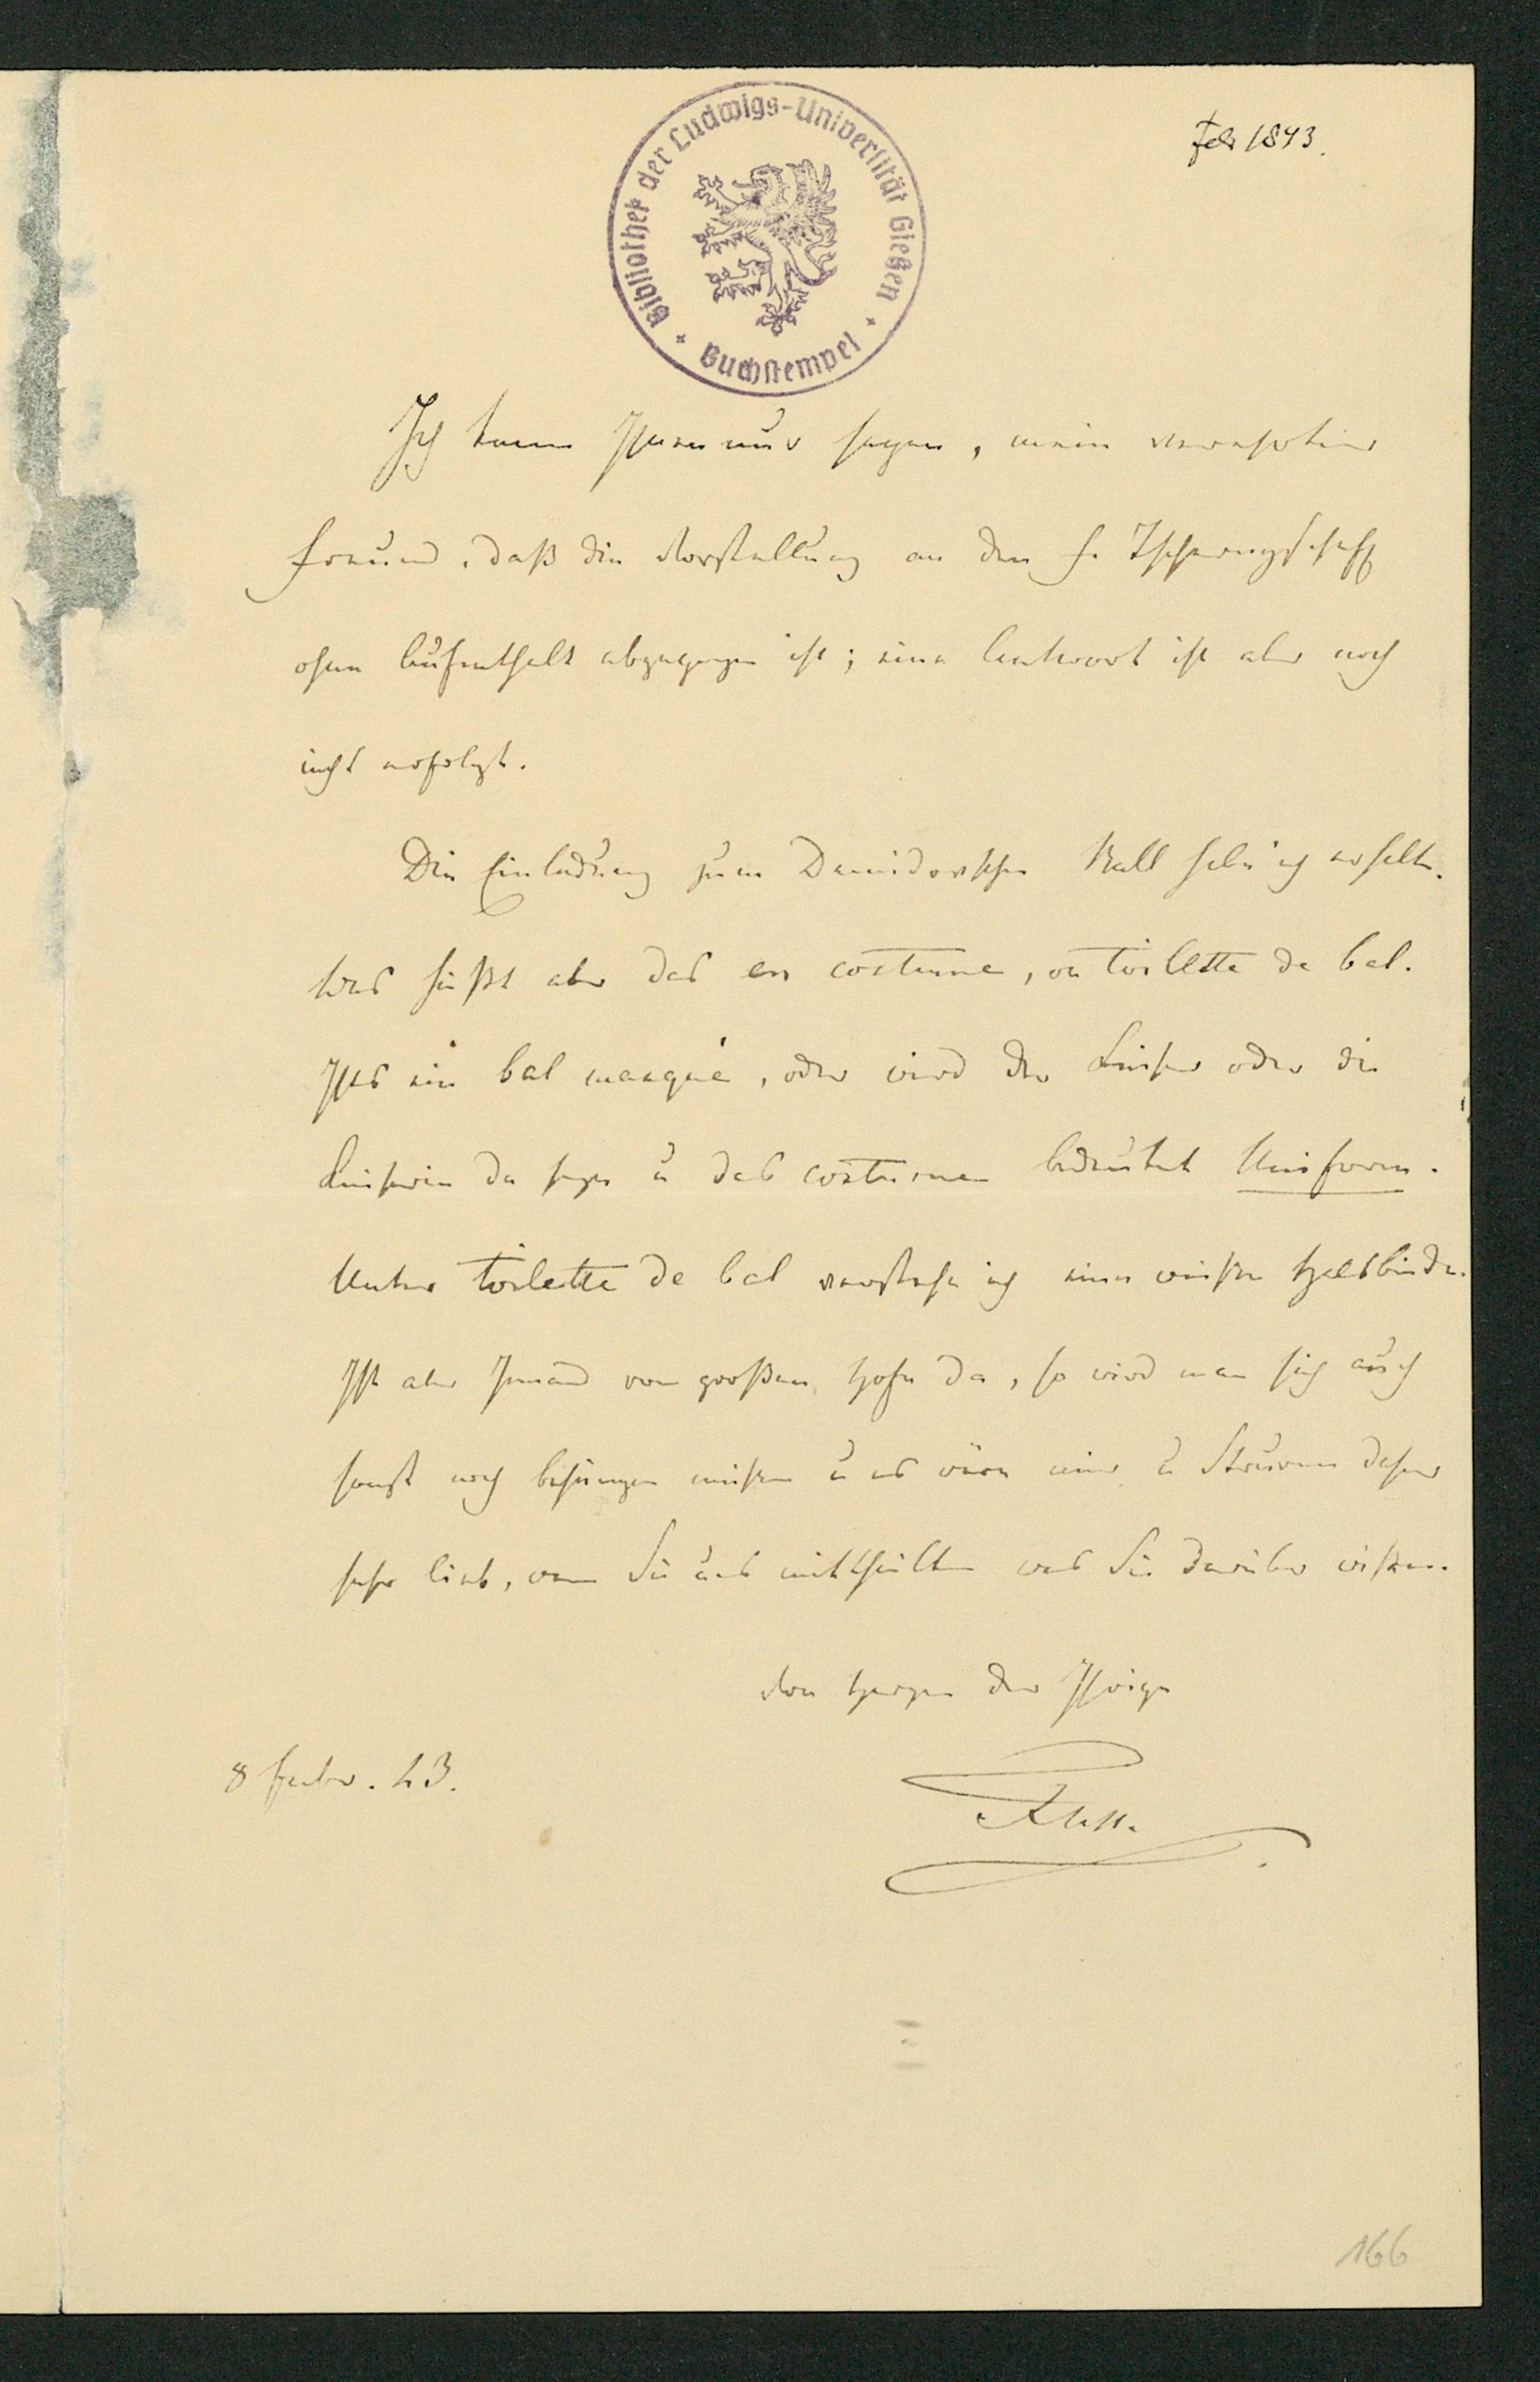 Feb 1843.
Bibliothek der Ludwigs-Universität Gießen
Buchstempel
Ich kann Ihnen nur sagen, mein verehrter
Freund, daß die Vorstellung an den H.
ohne Aufenthalt abgegangen ist; eine Antwort ist aber noch
nicht erfolgt.
Die Einladung zum Demidowschen Ball habe ich erhalten.
Was heißt aber das en costume, ou toilette de bal.
Ists ein bal masqué, oder wird der Kaiser oder die
Kaiserin da seyn u das costume bedeutet Uniform.
Unter toilette de bal verstehe ich eine weiße Halsbinde.
Ist aber Jemand vom großen Hofe da, so wird man sich auch
sonst noch behängen müssen u es wäre mir u Struven daher
sehr lieb, wenn Sie uns mittheilten was Sie darüber wissen.
Von Herzen der Ihrige
8 Febr. 43.
166